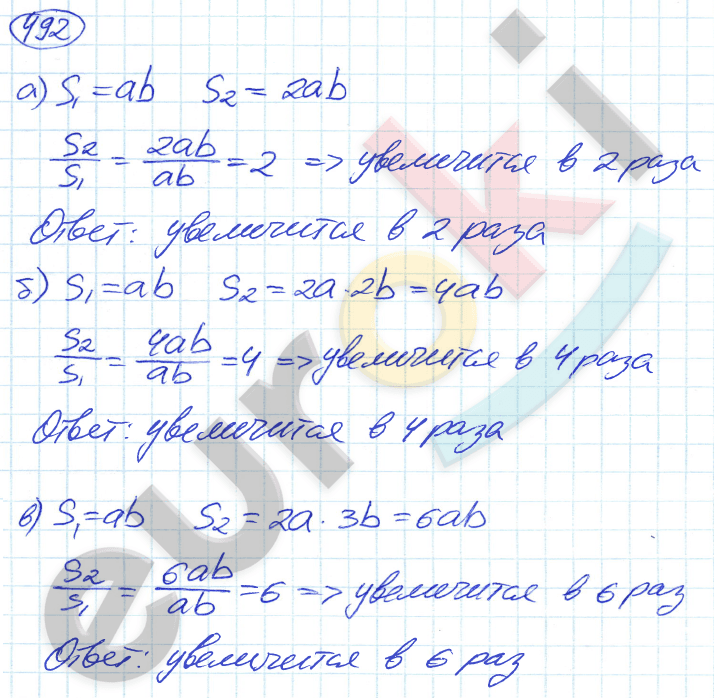 492
а) S₁ = ab S₂ = 2ab
S₂/S₁ = 2ab/ab = 2 => увеличится в 2 раза
Ответ: увеличится в 2 раза
б) S₁ = ab S₂ = 2a·2b = 4ab
S₂/S₁ = 4ab/ab = 4 => увеличится в 4 раза
Ответ: увеличится в 4 раза
в) S₁ = ab S₂ = 2a·3b = 6ab
S₂/S₁ = 6ab/ab = 6 => увеличится в 6 раз
Ответ: увеличится в 6 раз
euroki